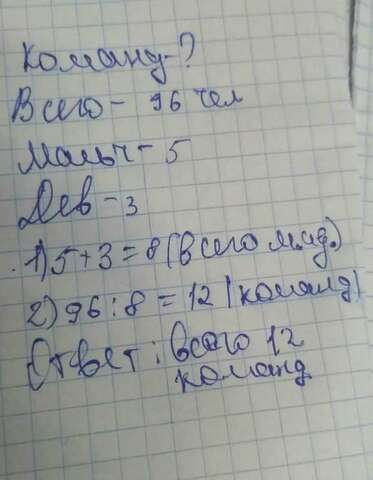 Команд-?
Всего- 96 чел
Мальч- 5
Дев-3
1) 5+3=8(всего м.и д.)
2) 96:8=12(команд)
Ответ: всего 12
команд